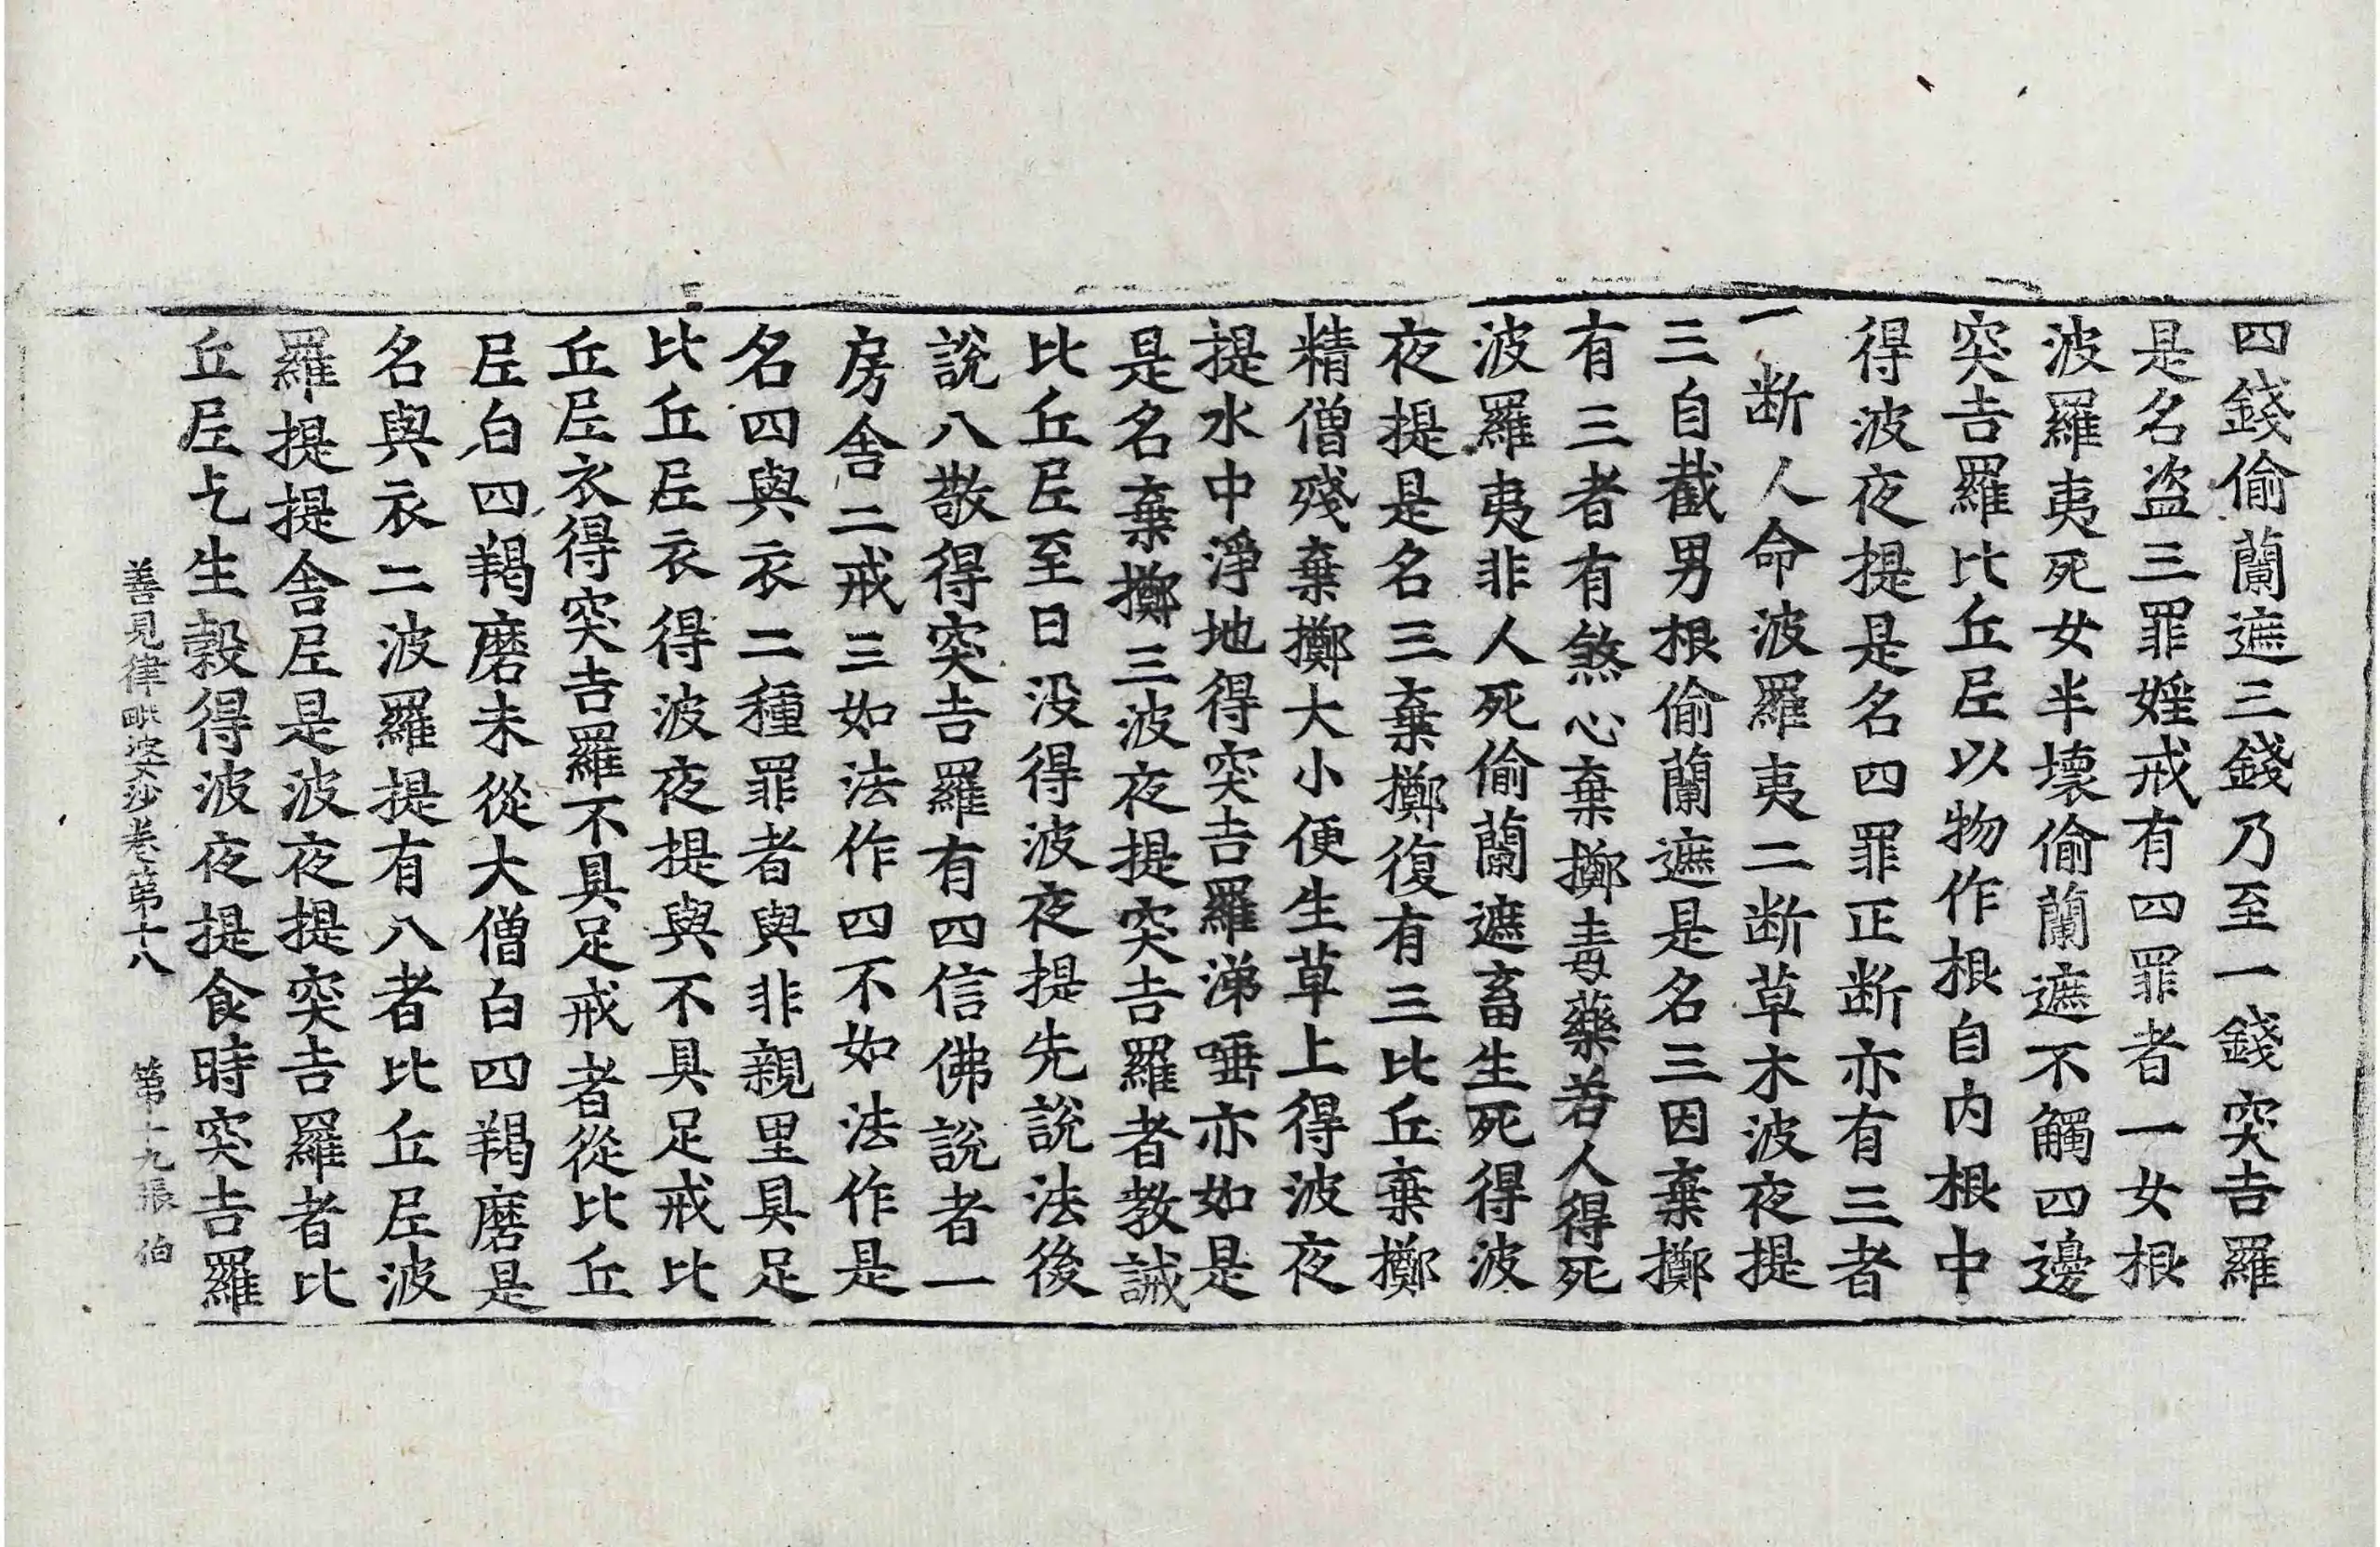 四錢偷蘭遮三錢乃至一錢突吉羅
是名盜三罪婬戒有四罪者一女根
波羅夷死女半壞偷蘭遮不觸四邊
突吉羅比丘尼以物作根自內根中
得波夜提是名四罪正断亦有三者
一断人命波羅夷二断草木波夜提
三自截男根偷蘭遮是名三因棄擲
有三者有煞心棄擲毒藥若人得死
波羅夷非人死偷蘭遮畜生死得波
夜提是名三棄擲復有三比丘棄擲
精僧殘棄擲大小便生草上得波夜
提水中淨地得突吉羅涕唾亦如是
是名棄擲三波夜提突吉羅者教誡
比丘尼至日没得波夜提先說法後
說八敬得突吉羅有四信佛說者一
房舍二戒三如法作四不如法作是
名四與衣二種罪者與非親里具足
比丘尼衣得波夜提與不具足戒比
丘尼衣得突吉羅不具足戒者從比丘
尼白四羯磨未從大僧白四羯磨是
名與衣二波羅提有八者比丘尼波
羅提提舍尼是波夜提突吉羅者比
丘尼乞生穀得波夜提食時突吉羅
善見律毗婆沙卷第十八 第十九張 伯